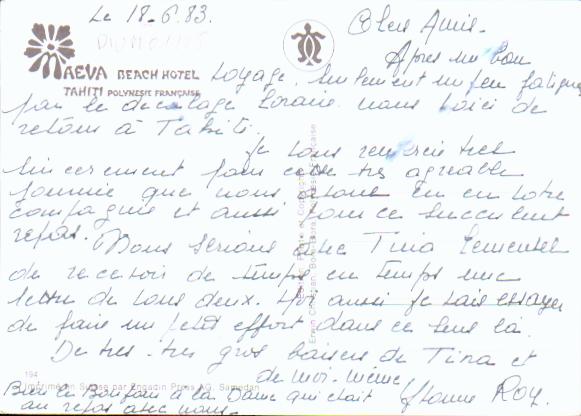 Le 18.6.83.
Chers Amis.
MAEVA BEACH HOTEL
TAHITI POLYNESIE FRANÇAISE
Après un bon
voyage. Seulement un peu fatigués
par le décalage horaire nous voici de
retour à Tahiti.
Je vous remercie très
sincèrement pour cette très agréable
journée que nous avons eu en votre
compagnie et aussi pour ce succulent
repas. Nous serions chère Tina
de recevoir de temps en temps une
lettre de vous deux. Moi aussi je vais essayer
de faire un petit effort dans ce sens là.
De très très gros baisers de Tina et
de moi-même.
194
Imprimé en Suisse par Engadin Press AG, Samedan
Bien le Bonjour à la Dame qui était
au repas avec nous.
Yvonne Roy.